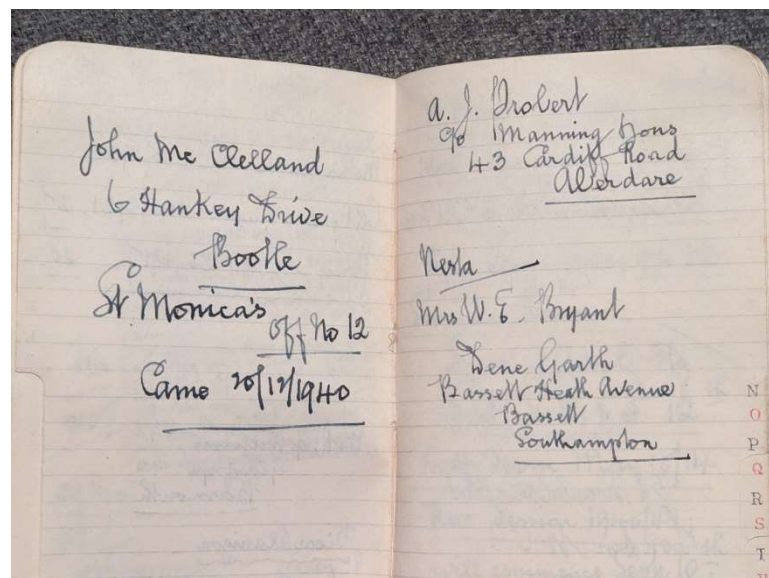 John Mc Clelland
6 Hankey Drive
Bootle
St Monica's
Off No 12
Came 20/12/1940
A. J. Probert
c/o Manning Sons
43 Cardiff Road
Aberdare
Nesta
Mrs W. E. Bryant
Dene Garth
Bassett Heath Avenue
Bassett
Southampton
N
O
P
Q
R
S
T